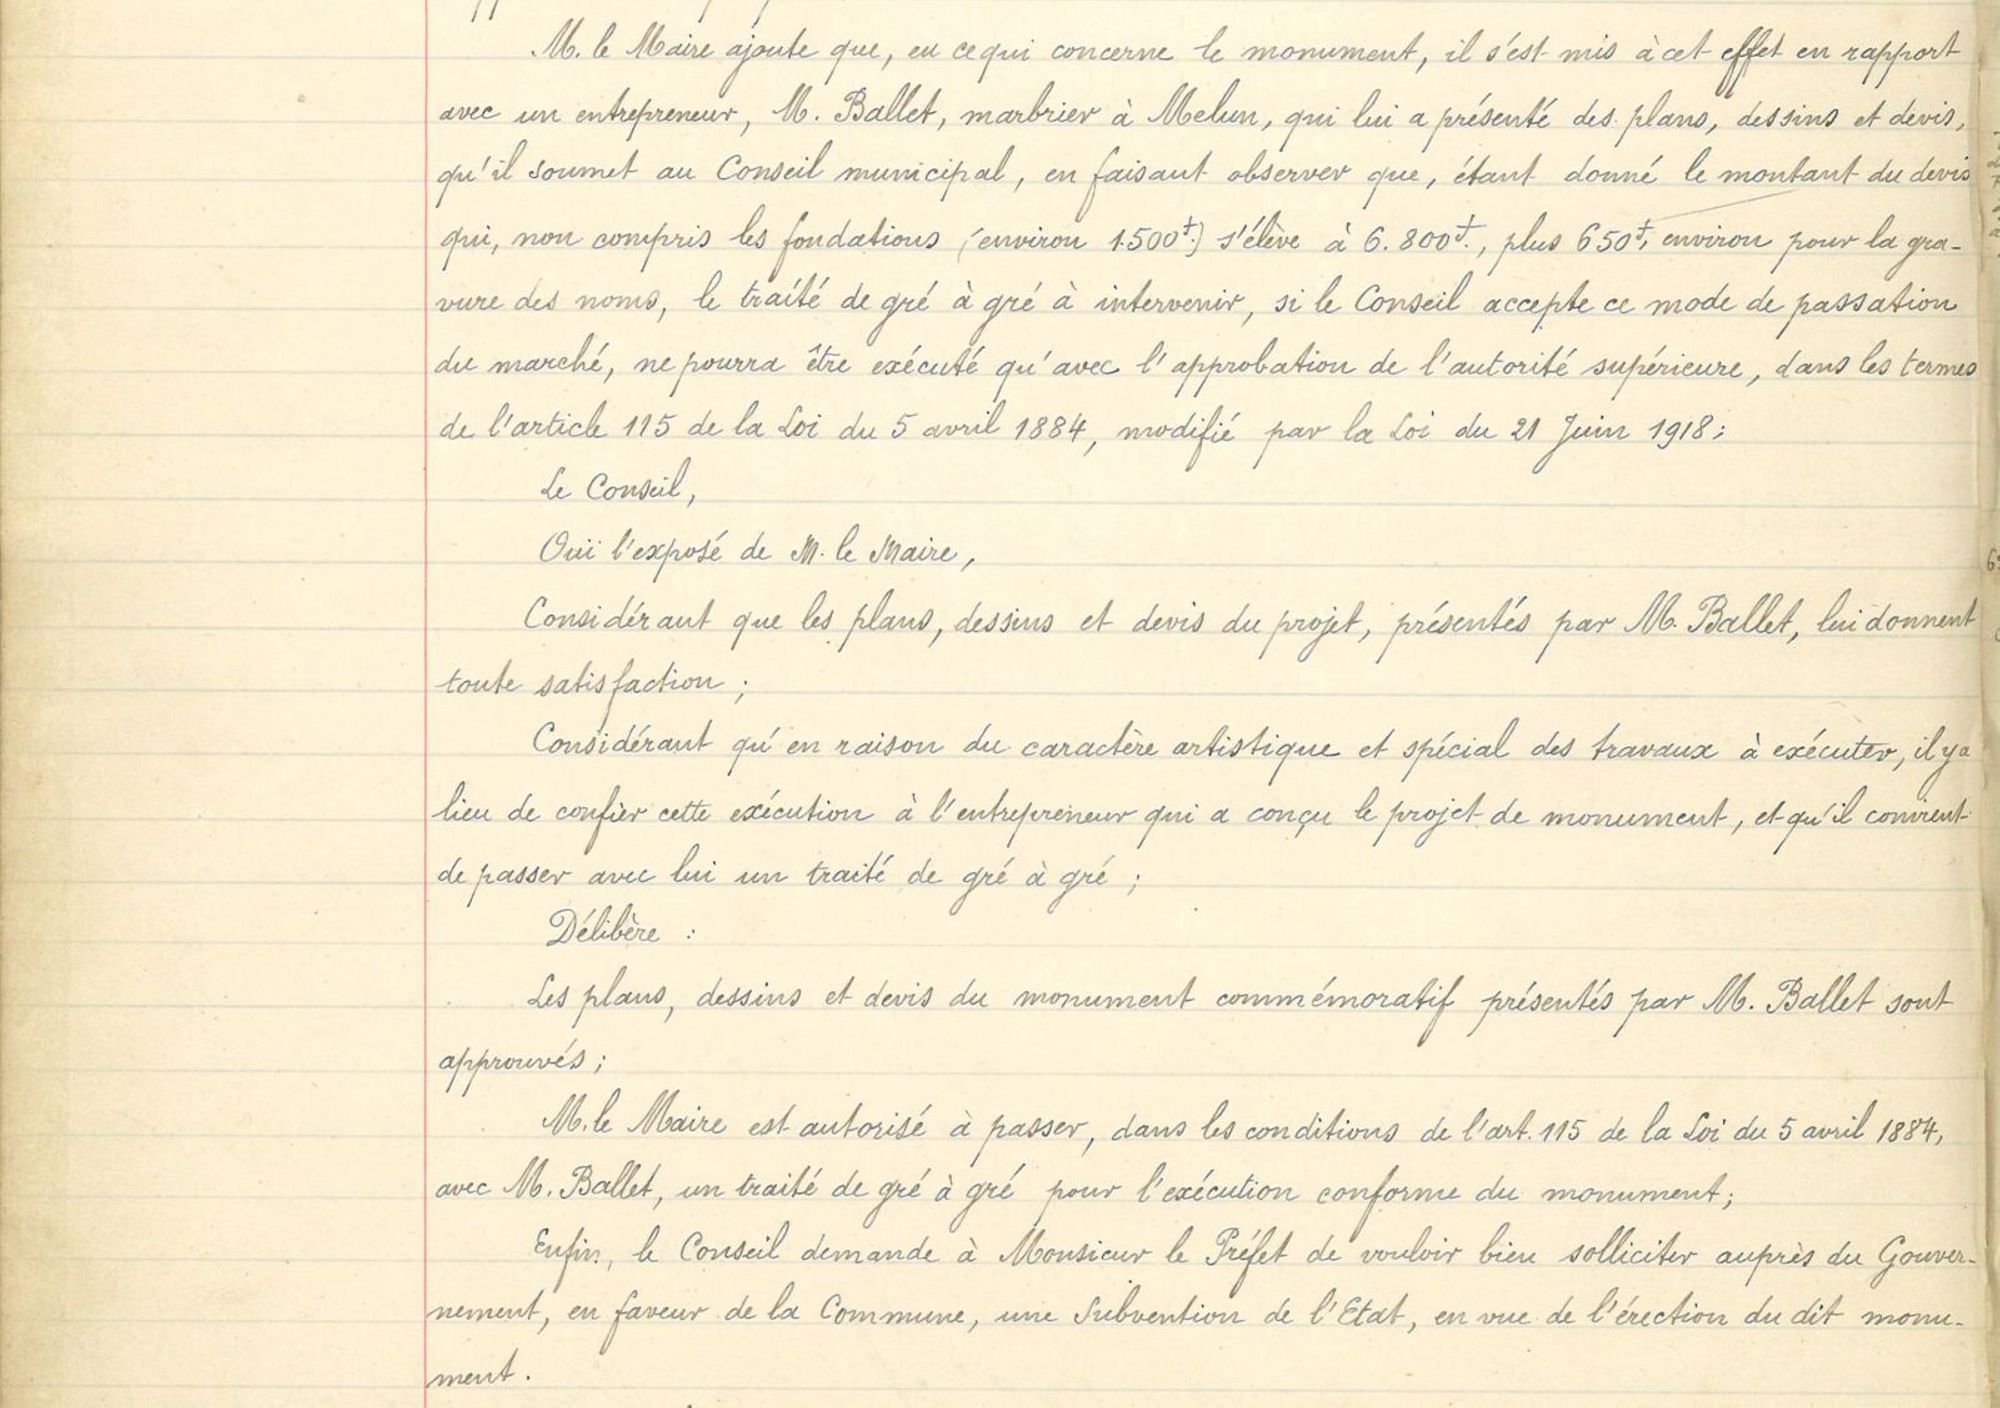 M. le Maire ajoute que, en ce qui concerne le monument, il s'est mis à cet effet en rapport
avec un entrepreneur, M. Ballet, marbrier à Melun, qui lui a présenté des plans, dessins et devis,
qu'il soumet au Conseil municipal, en faisant observer que, étant donné le montant du devis
qui, non compris les fondations (environ 1.500f.) s'élève à 6.800f., plus 650f. environ pour la gra-
vure des noms, le traité de gré à gré à intervenir, si le Conseil accepte ce mode de passation
du marché, ne pourra être exécuté qu'avec l'approbation de l'autorité supérieure, dans les termes
de l'article 115 de la Loi du 5 avril 1884, modifié par la Loi du 21 Juin 1918;
Le Conseil,
Ouï l'exposé de M. le Maire,
Considérant que les plans, dessins et devis du projet, présentés par M. Ballet, lui donnent
toute satisfaction ;
Considérant qu'en raison du caractère artistique et spécial des travaux à exécuter, il y a
lieu de confier cette exécution à l'entrepreneur qui a conçu le projet de monument, et qu'il convient
de passer avec lui un traité de gré à gré ;
Délibère :
Les plans, dessins et devis du monument commémoratif présentés par M. Ballet sont
approuvés ;
M. le Maire est autorisé à passer, dans les conditions de l'art. 115 de la Loi du 5 avril 1884,
avec M. Ballet, un traité de gré à gré pour l'exécution conforme du monument ;
Enfin, le Conseil demande à Monsieur le Préfet de vouloir bien solliciter auprès du Gouver-
nement, en faveur de la Commune, une Subvention de l'Etat, en vue de l'érection du dit monu-
ment.